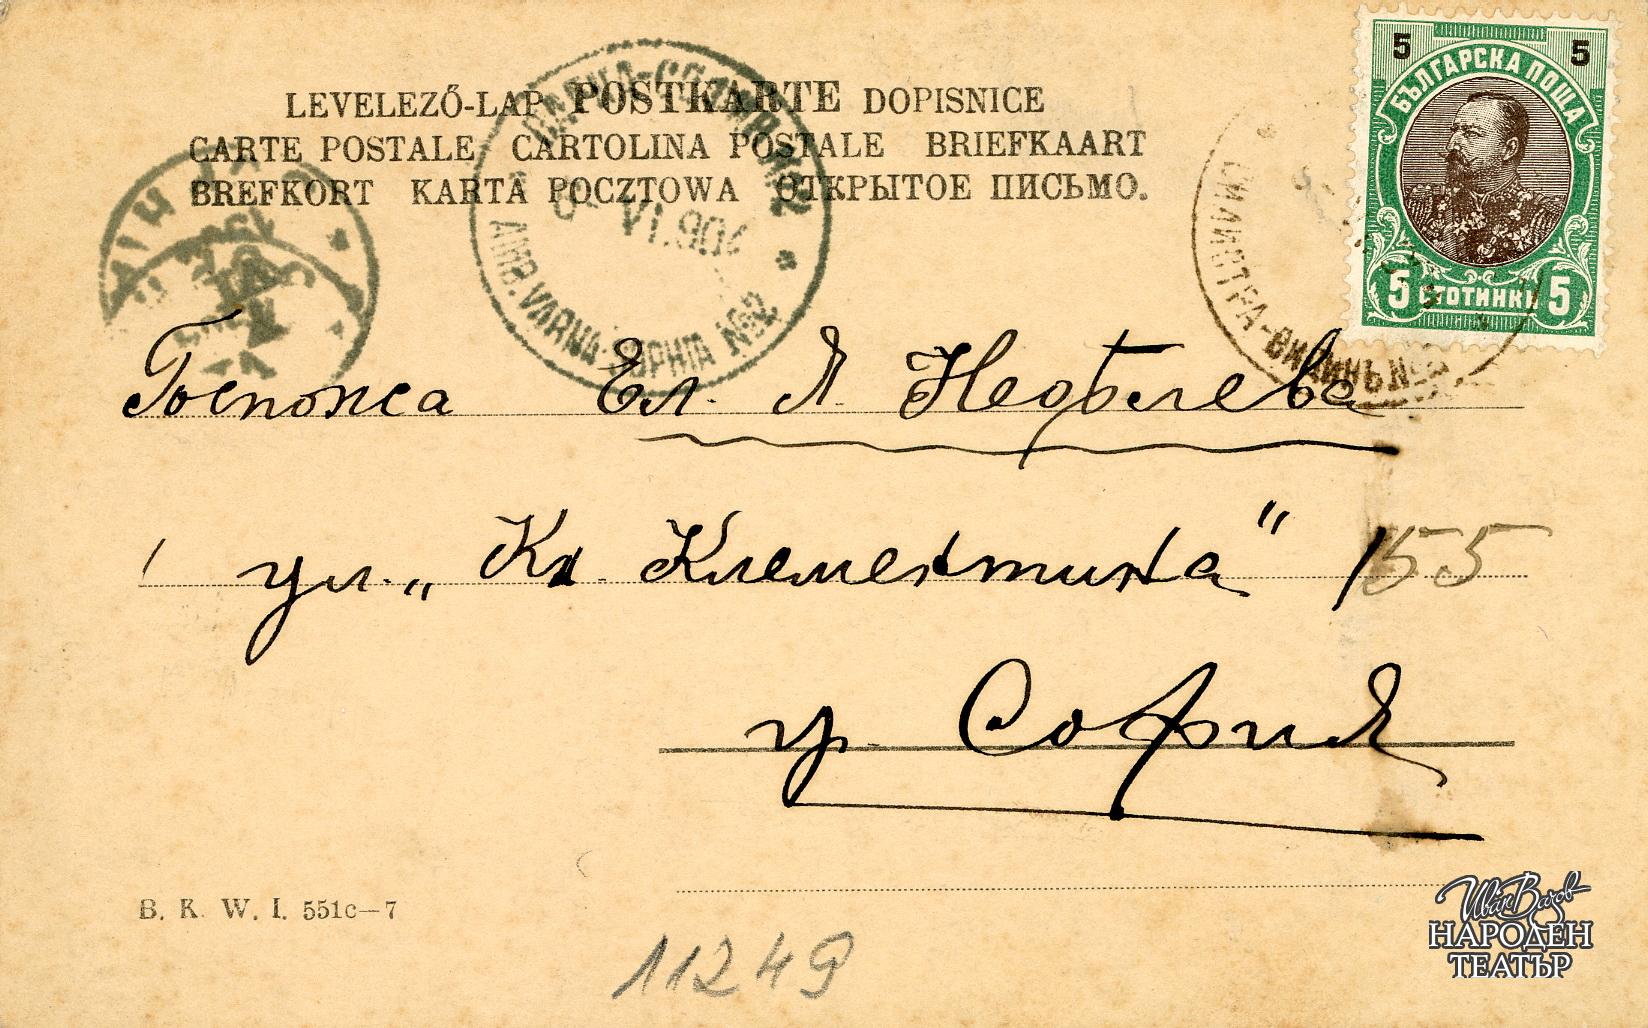 LEVELEZŐ-LAP POSTKARTE DOPISNICE
CARTE POSTALE CARTOLINA POSTALE BRIEFKAART
BREFKORT KARTA POCZTOWA ОТКРЫТОЕ ПИСЬМО.
5 5
БЪЛГАРСКА ПОЩА
5 СТОТИНКИ 5
AMB. VARNA-SOPHIA №2
VI.904
СИЛИСТРА-ВИДИНЪ №
Госпожа Ел. Я Недѣлева
ул. „Кн. Клементина" 155
гр. София
B. K. W. I. 551c—7
11249
Иван Вазов
НАРОДЕН
ТЕАТЪР